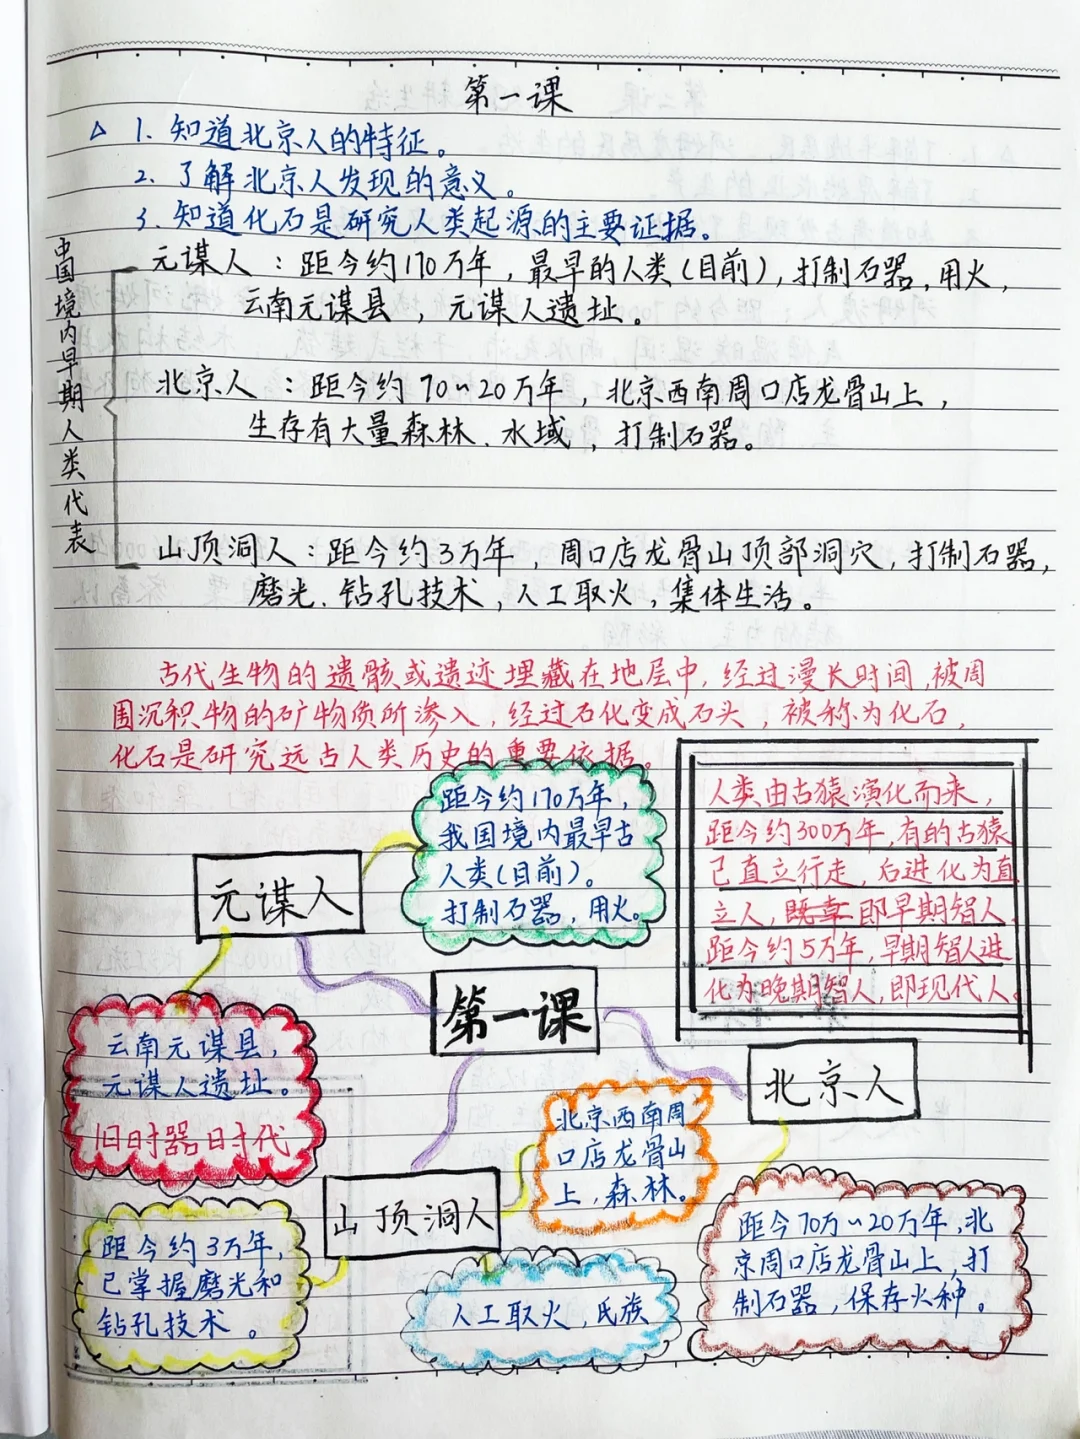 第一课
△ 1. 知道北京人的特征。
2. 了解北京人发现的意义。
3. 知道化石是研究人类起源的主要证据。
中国境内早期人类代表
元谋人：距今约170万年，最早的人类(目前)，打制石器、用火，
云南元谋县，元谋人遗址。
北京人：距今约70~20万年，北京西南周口店龙骨山上，
生存有大量森林、水域，打制石器。
山顶洞人：距今约3万年，周口店龙骨山顶部洞穴，打制石器，
磨光、钻孔技术，人工取火，集体生活。
古代生物的遗骸或遗迹埋藏在地层中，经过漫长时间，被周
围沉积物的矿物质所渗入，经过石化变成石头，被称为化石，
化石是研究远古人类历史的重要依据。
人类由古猿演化而来，
距今约300万年，有的古猿
已直立行走，后进化为直
立人，即早期智人，
距今约5万年，早期智人进
化为晚期智人，即现代人。
距今约170万年，
我国境内最早古
人类(目前)。
打制石器，用火。
元谋人
第一课
云南元谋县，
元谋人遗址。
旧时器时代
北京人
北京西南周
口店龙骨山
上，森林。
山顶洞人
距今约3万年，
已掌握磨光和
钻孔技术。
人工取火，氏族
距今70万~20万年，北
京周口店龙骨山上，打
制石器，保存火种。